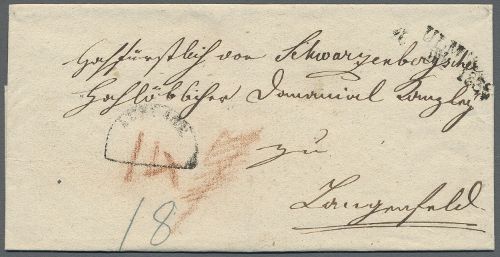 Hochfürstlich von Schwarzenbergsche
Hochlöblicher Domanial Canzley
14
zu
18
Langenfeld